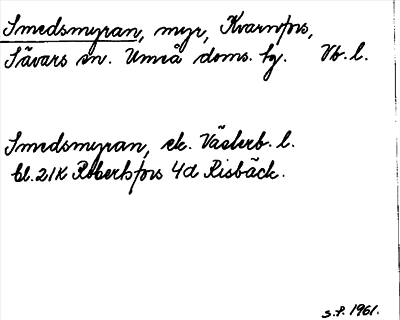 Smedsmyran, myr, Kvarnfors,
Sävars sn. Umeå doms. tg. Vb. l.
Smedsmyran, ek. Västerb. l.
bl. 21K Robertsfors 4d Risbäck.
s.f. 1961.